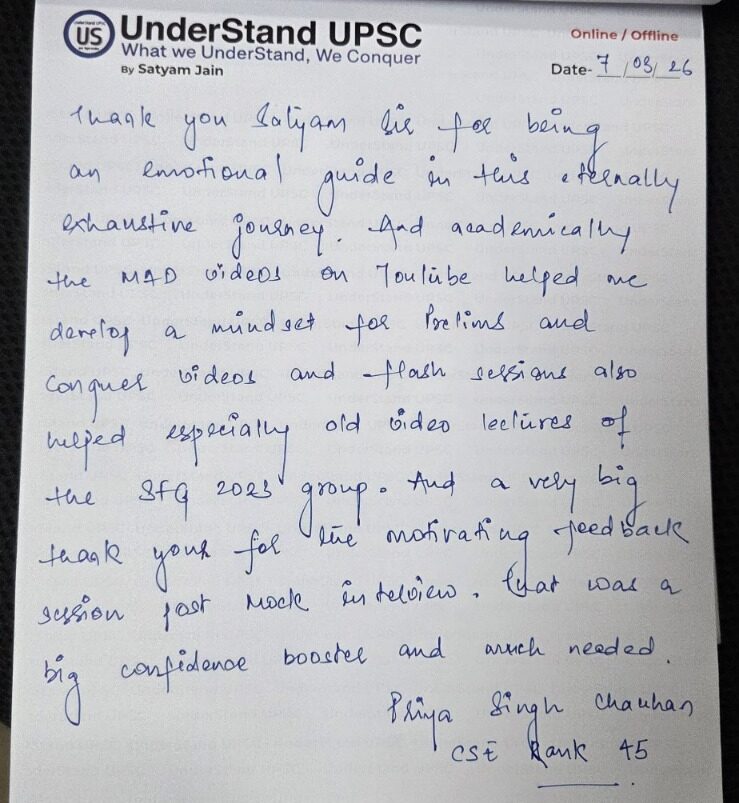 UnderStand UPSC
What we UnderStand, We Conquer
By Satyam Jain
US
Online / Offline
Date- 7 / 03 / 26
Thank you Satyam Sir for being
an emotional guide in this eternally
exhaustive journey. And academically
the MAD videos on Youtube helped me
develop a mindset for Prelims and
Conquer videos and flash sessions also
helped especially old video lectures of
the SFG 2023 group. And a very big
thank your for the motivating feedback
session post Mock interview. that was a
big confidence booster and much needed.
Priya Singh Chauhan
CSE Rank 45